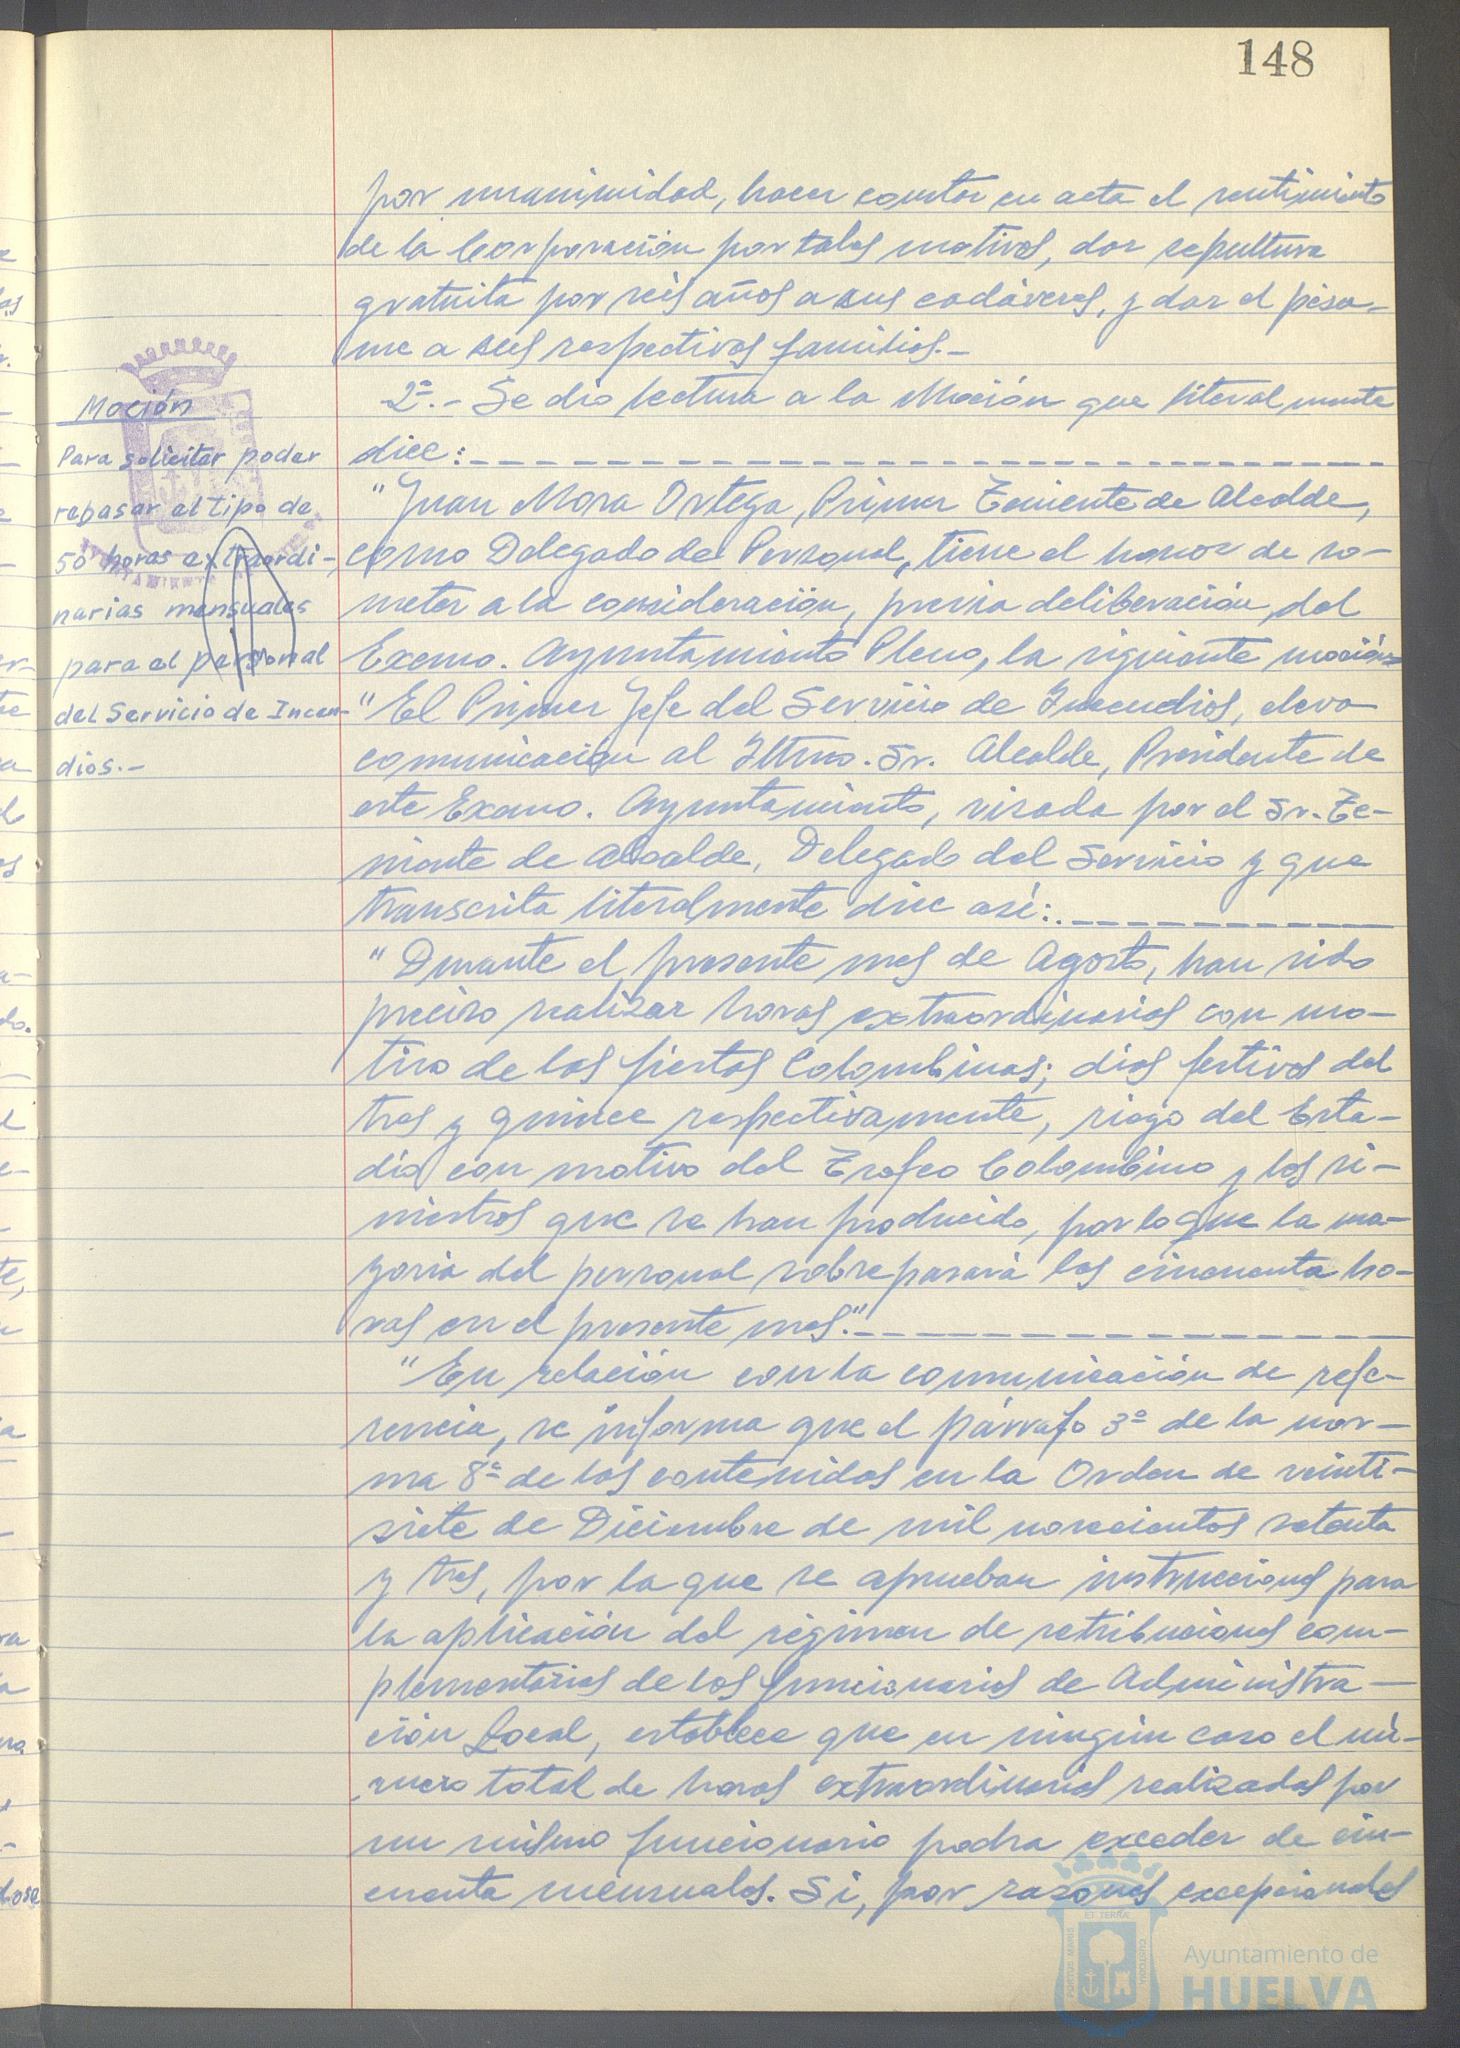 148
por unanimidad, hacer constar en acta el sentimiento
de la Corporación por tales motivos, dar sepultura
gratuita por seis años a sus cadáveres, y dar el pésa-
me a sus respectivas familias.-
Moción
Para solicitar poder
repasar el tipo de
50 horas extraordi-
narias mensuales
para el personal
del Servicio de Incen-
dios.-
2º.- Se dio lectura a la Moción que literalmente
dice:
"Juan Mora Ortega, Primer Teniente de Alcalde,
como Delegado de Personal, tiene el honor de so-
meter a la consideración, previa deliberación, del
Excmo. Ayuntamiento Pleno, la siguiente moción:
"El Primer Jefe del Servicio de Incendios, eleva
comunicación al Iltmo. Sr. Alcalde, Presidente de
este Excmo. Ayuntamiento, visada por el Sr. Te-
niente de Alcalde, Delegado del Servicio y que
transcrita literalmente dice así:
"Durante el presente mes de Agosto, han sido
preciso realizar horas extraordinarias con mo-
tivo de las fiestas Colombinas; días festivos del
tres y quince respectivamente, riego del Esta-
dio con motivo del Trofeo Colombino y los si-
niestros que se han producido, por lo que la ma-
yoría del personal sobrepasará las cincuenta ho-
ras en el presente mes."
"En relación con la comunicación de refe-
rencia, se informa que el párrafo 3º de la nor-
ma 8ª de las contenidas en la Orden de veinti-
siete de Diciembre de mil novecientos setenta
y tres, por la que se aprueban instrucciones para
la aplicación del régimen de retribuciones com-
plementarias de los funcionarios de Administra-
ción Local, establece que en ningún caso el nú-
mero total de horas extraordinarias realizadas por
un mismo funcionario podrá exceder de cin-
cuenta mensuales. Si, por razones excepcionales
PORTUS MARIS ET TERRAE CUSTODIA
Ayuntamiento de
HUELVA